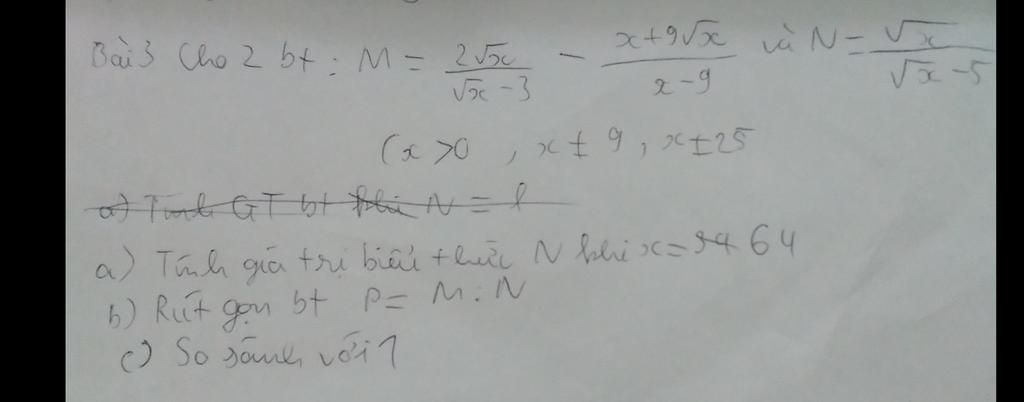 Bài 3 Cho 2 bt : M = 2√x / (√x - 3) - (x + 9√x) / (x - 9) và N = √x / (√x - 5)
(x > 0 , x ≠ 9 , x ≠ 25
a) Tính GT bt khi N = 1
a) Tính giá trị biểu thức N khi x = 64
b) Rút gọn bt P = M : N
c) So sánh với 1